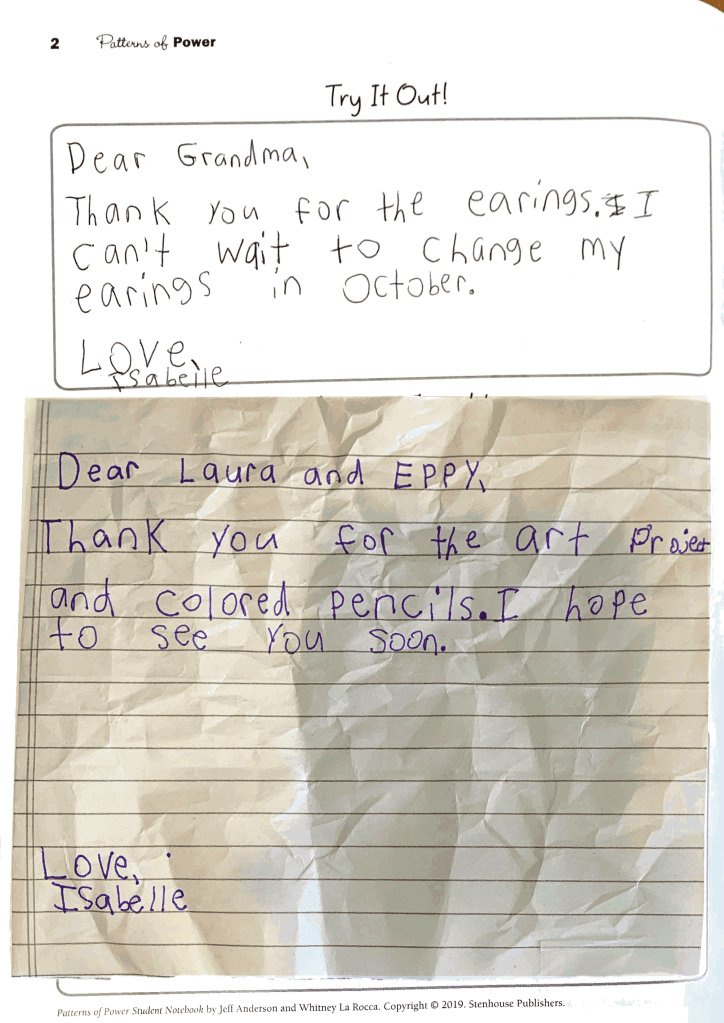 2 Patterns of Power
Try It Out!
Dear Grandma,
Thank you for the earings. I
can't wait to change my
earings in October.
Love,
Isabelle
Dear Laura and EPPY,
Thank you for the art Project
and colored pencils. I hope
to see you soon.
Love,
ISabelle
Patterns of Power Student Notebook by Jeff Anderson and Whitney La Rocca. Copyright © 2019. Stenhouse Publishers.